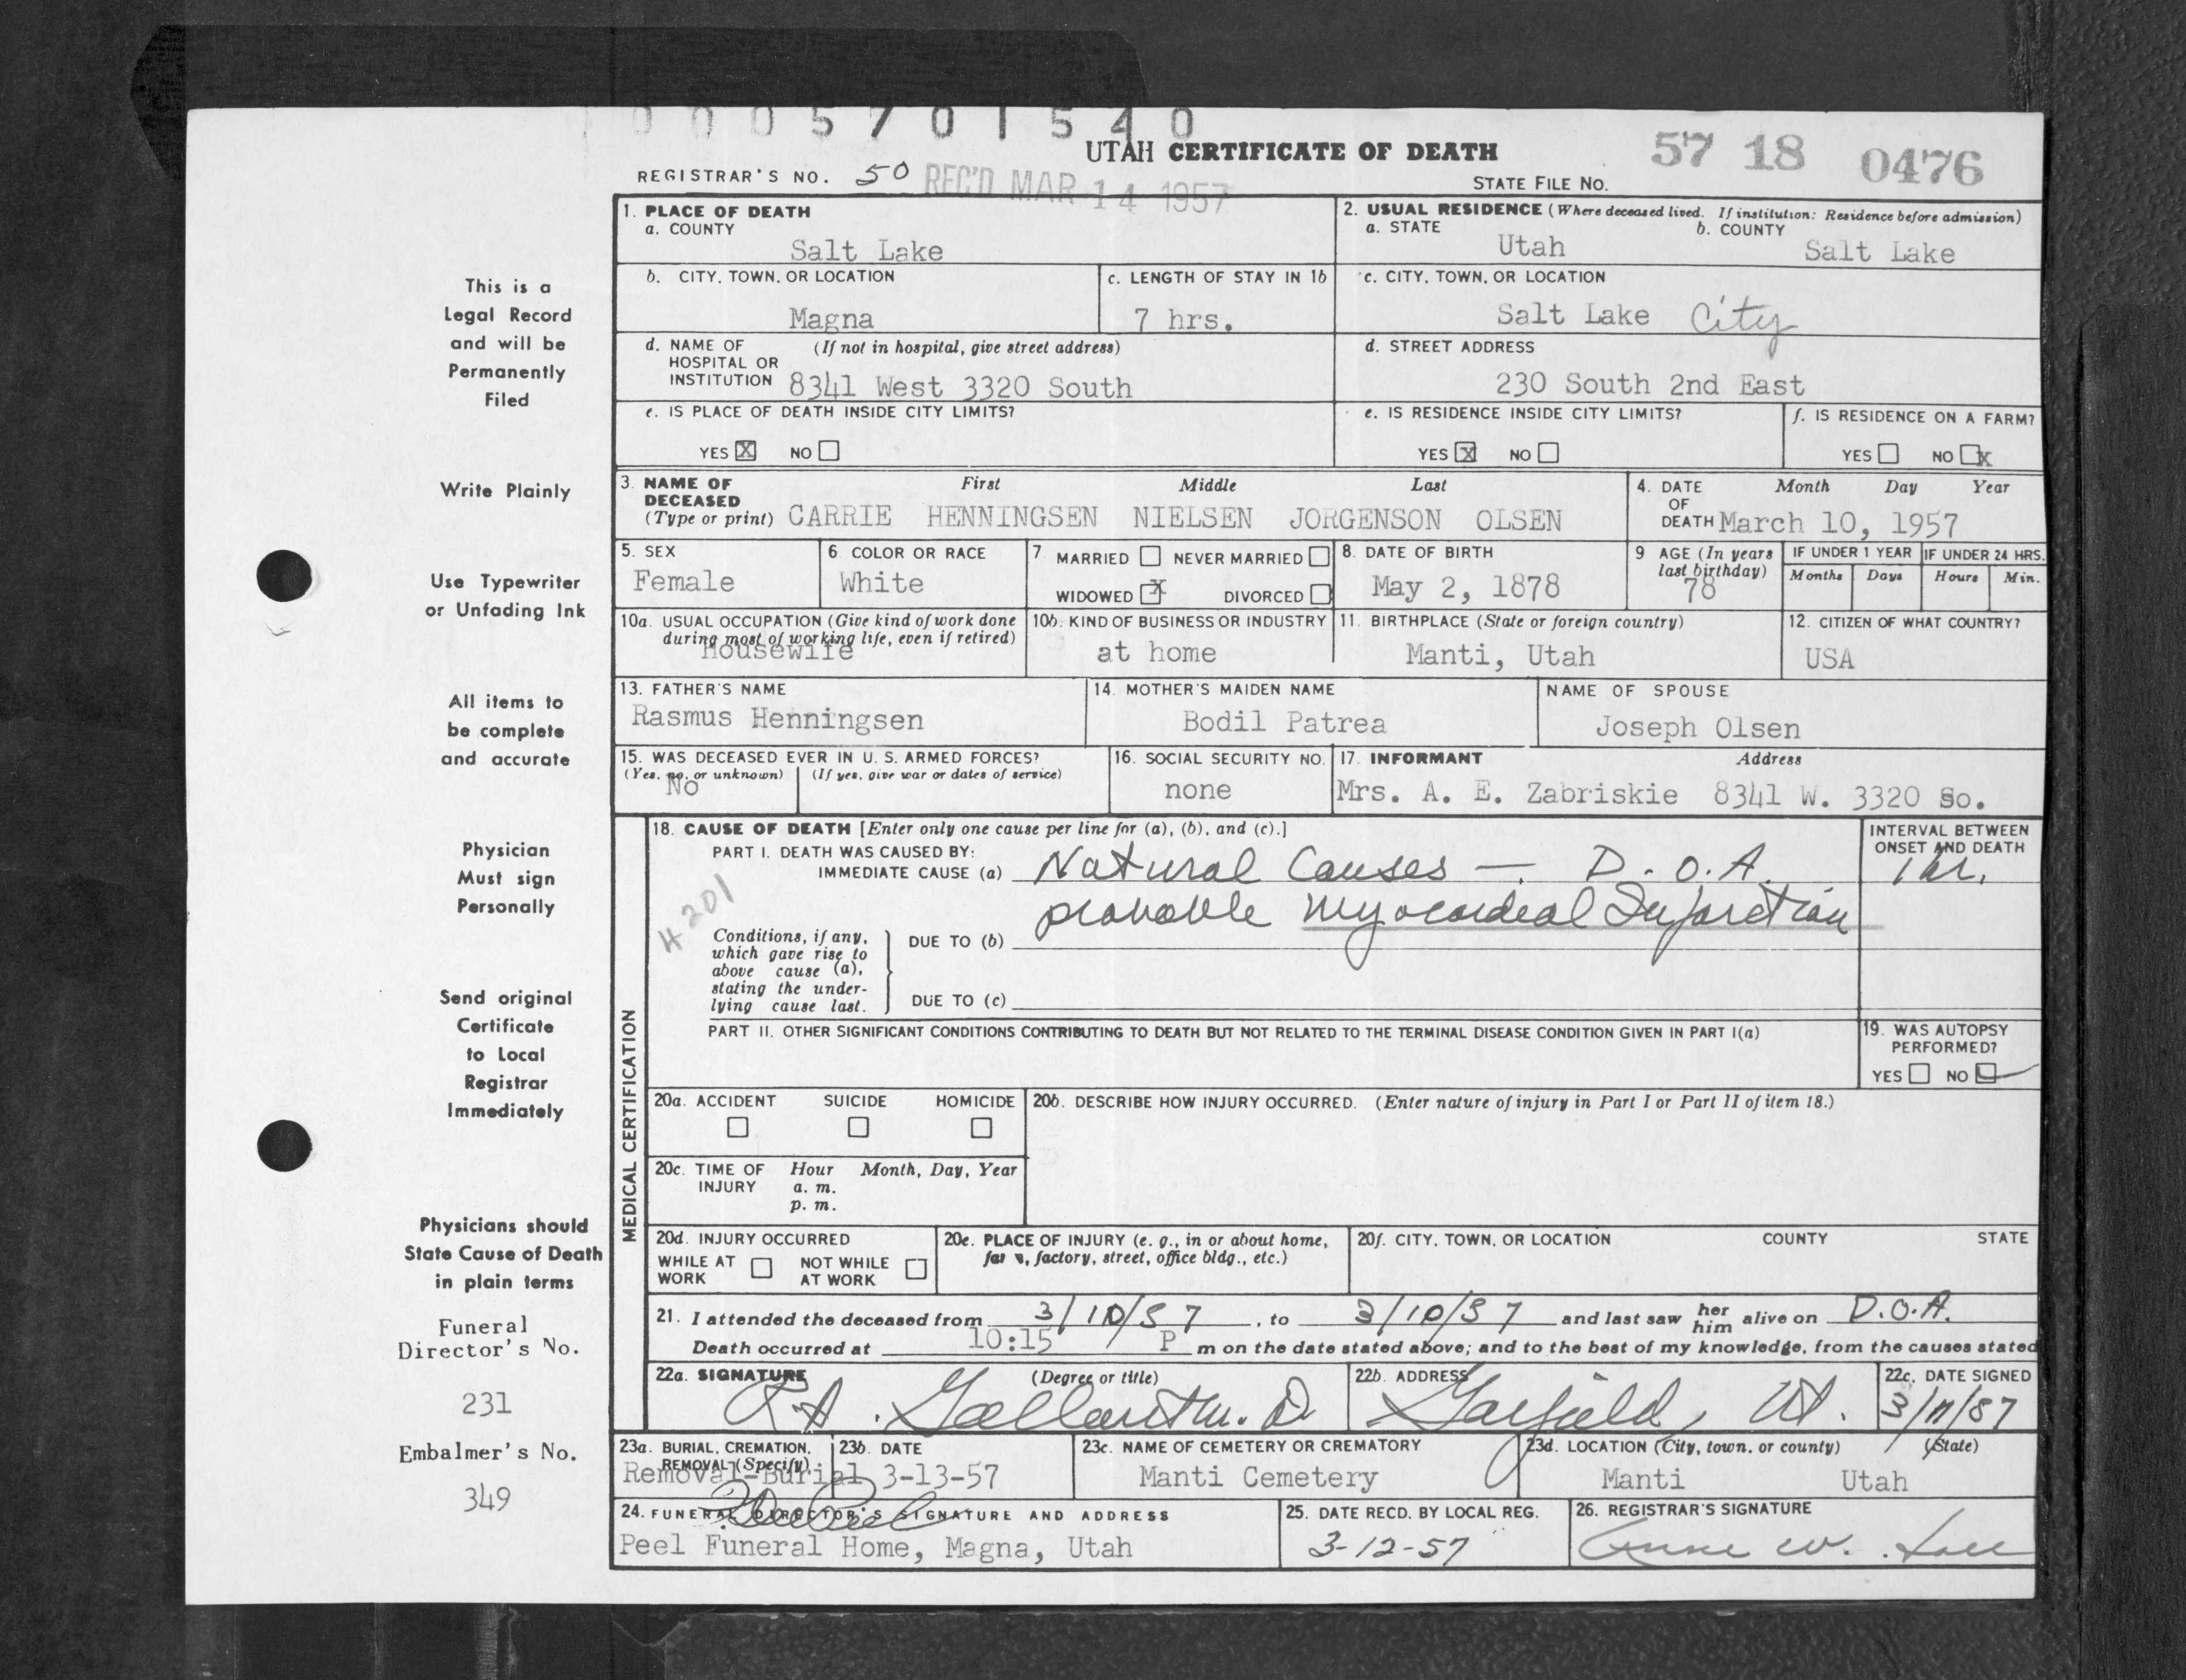 0005701540
UTAH CERTIFICATE OF DEATH
57 18 0476
REGISTRAR'S NO. 50 REC'D MAR 14 1957
STATE FILE NO.
This is a
Legal Record
and will be
Permanently
Filed
Write Plainly
Use Typewriter
or Unfading Ink
All items to
be complete
and accurate
Physician
Must sign
Personally
Send original
Certificate
to Local
Registrar
Immediately
Physicians should
State Cause of Death
in plain terms
Funeral
Director's No.
231
Embalmer's No.
349
1. PLACE OF DEATH
a. COUNTY
Salt Lake
2. USUAL RESIDENCE (Where deceased lived. If institution: Residence before admission)
a. STATE b. COUNTY
Utah Salt Lake
b. CITY, TOWN, OR LOCATION
Magna
c. LENGTH OF STAY IN 1b
7 hrs.
c. CITY, TOWN, OR LOCATION
Salt Lake City
d. NAME OF (If not in hospital, give street address)
HOSPITAL OR
INSTITUTION 8341 West 3320 South
d. STREET ADDRESS
230 South 2nd East
e. IS PLACE OF DEATH INSIDE CITY LIMITS?
YES X NO
e. IS RESIDENCE INSIDE CITY LIMITS?
YES X NO
f. IS RESIDENCE ON A FARM?
YES NO X
3. NAME OF First Middle Last
DECEASED
(Type or print) CARRIE HENNINGSEN NIELSEN JORGENSON OLSEN
4. DATE Month Day Year
OF
DEATH March 10, 1957
5. SEX
Female
6. COLOR OR RACE
White
7. MARRIED NEVER MARRIED
WIDOWED X DIVORCED
8. DATE OF BIRTH
May 2, 1878
9 AGE (In years
last birthday)
78
IF UNDER 1 YEAR
Months Days
IF UNDER 24 HRS.
Hours Min.
10a. USUAL OCCUPATION (Give kind of work done
during most of working life, even if retired)
Housewife
10b. KIND OF BUSINESS OR INDUSTRY
at home
11. BIRTHPLACE (State or foreign country)
Manti, Utah
12. CITIZEN OF WHAT COUNTRY?
USA
13. FATHER'S NAME
Rasmus Henningsen
14. MOTHER'S MAIDEN NAME
Bodil Patrea
NAME OF SPOUSE
Joseph Olsen
15. WAS DECEASED EVER IN U. S. ARMED FORCES?
(Yes, no, or unknown) (If yes, give war or dates of service)
No
16. SOCIAL SECURITY NO.
none
17. INFORMANT Address
Mrs. A. E. Zabriskie 8341 W. 3320 So.
MEDICAL CERTIFICATION
18. CAUSE OF DEATH [Enter only one cause per line for (a), (b), and (c).]
PART I. DEATH WAS CAUSED BY:
IMMEDIATE CAUSE (a) Natural Causes — D.O.A.
probable Myocardial Infarction
INTERVAL BETWEEN
ONSET AND DEATH
1 hr.
4201
Conditions, if any,
which gave rise to
above cause (a),
stating the under-
lying cause last.
DUE TO (b)
DUE TO (c)
PART II. OTHER SIGNIFICANT CONDITIONS CONTRIBUTING TO DEATH BUT NOT RELATED TO THE TERMINAL DISEASE CONDITION GIVEN IN PART I(a)
19. WAS AUTOPSY
PERFORMED?
YES NO
20a. ACCIDENT SUICIDE HOMICIDE
20b. DESCRIBE HOW INJURY OCCURRED. (Enter nature of injury in Part I or Part II of item 18.)
20c. TIME OF Hour Month, Day, Year
INJURY a. m.
p. m.
20d. INJURY OCCURRED
WHILE AT NOT WHILE
WORK AT WORK
20e. PLACE OF INJURY (e. g., in or about home,
farm, factory, street, office bldg., etc.)
20f. CITY, TOWN, OR LOCATION COUNTY STATE
21. I attended the deceased from 3/10/57, to 3/10/57 and last saw her him alive on D.O.A.
Death occurred at 10:15 P m on the date stated above; and to the best of my knowledge, from the causes stated
22a. SIGNATURE (Degree or title)
R.A. Gallant M.D.
22b. ADDRESS
Garfield, Ut.
22c. DATE SIGNED
3/11/57
23a. BURIAL, CREMATION,
REMOVAL (Specify)
Removal-Burial
23b. DATE
3-13-57
23c. NAME OF CEMETERY OR CREMATORY
Manti Cemetery
23d. LOCATION (City, town, or county) (State)
Manti Utah
24. FUNERAL DIRECTOR'S SIGNATURE AND ADDRESS
Peel Funeral Home, Magna, Utah
25. DATE RECD. BY LOCAL REG.
3-12-57
26. REGISTRAR'S SIGNATURE
Anne W.